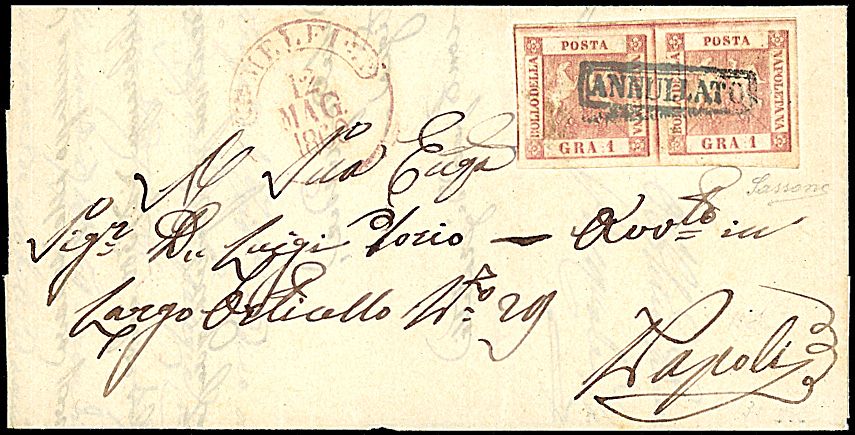 MELFI
12
MAG
POSTA
BOLLO DELLA
NAPOLETANA
GRA 1
POSTA
BOLLO DELLA
NAPOLETANA
GRA 1
ANNULLATO
Sassone
A Sua
Sigr. Dn. Luigi Iorio — in
Largo Orticello No. 29
Napoli